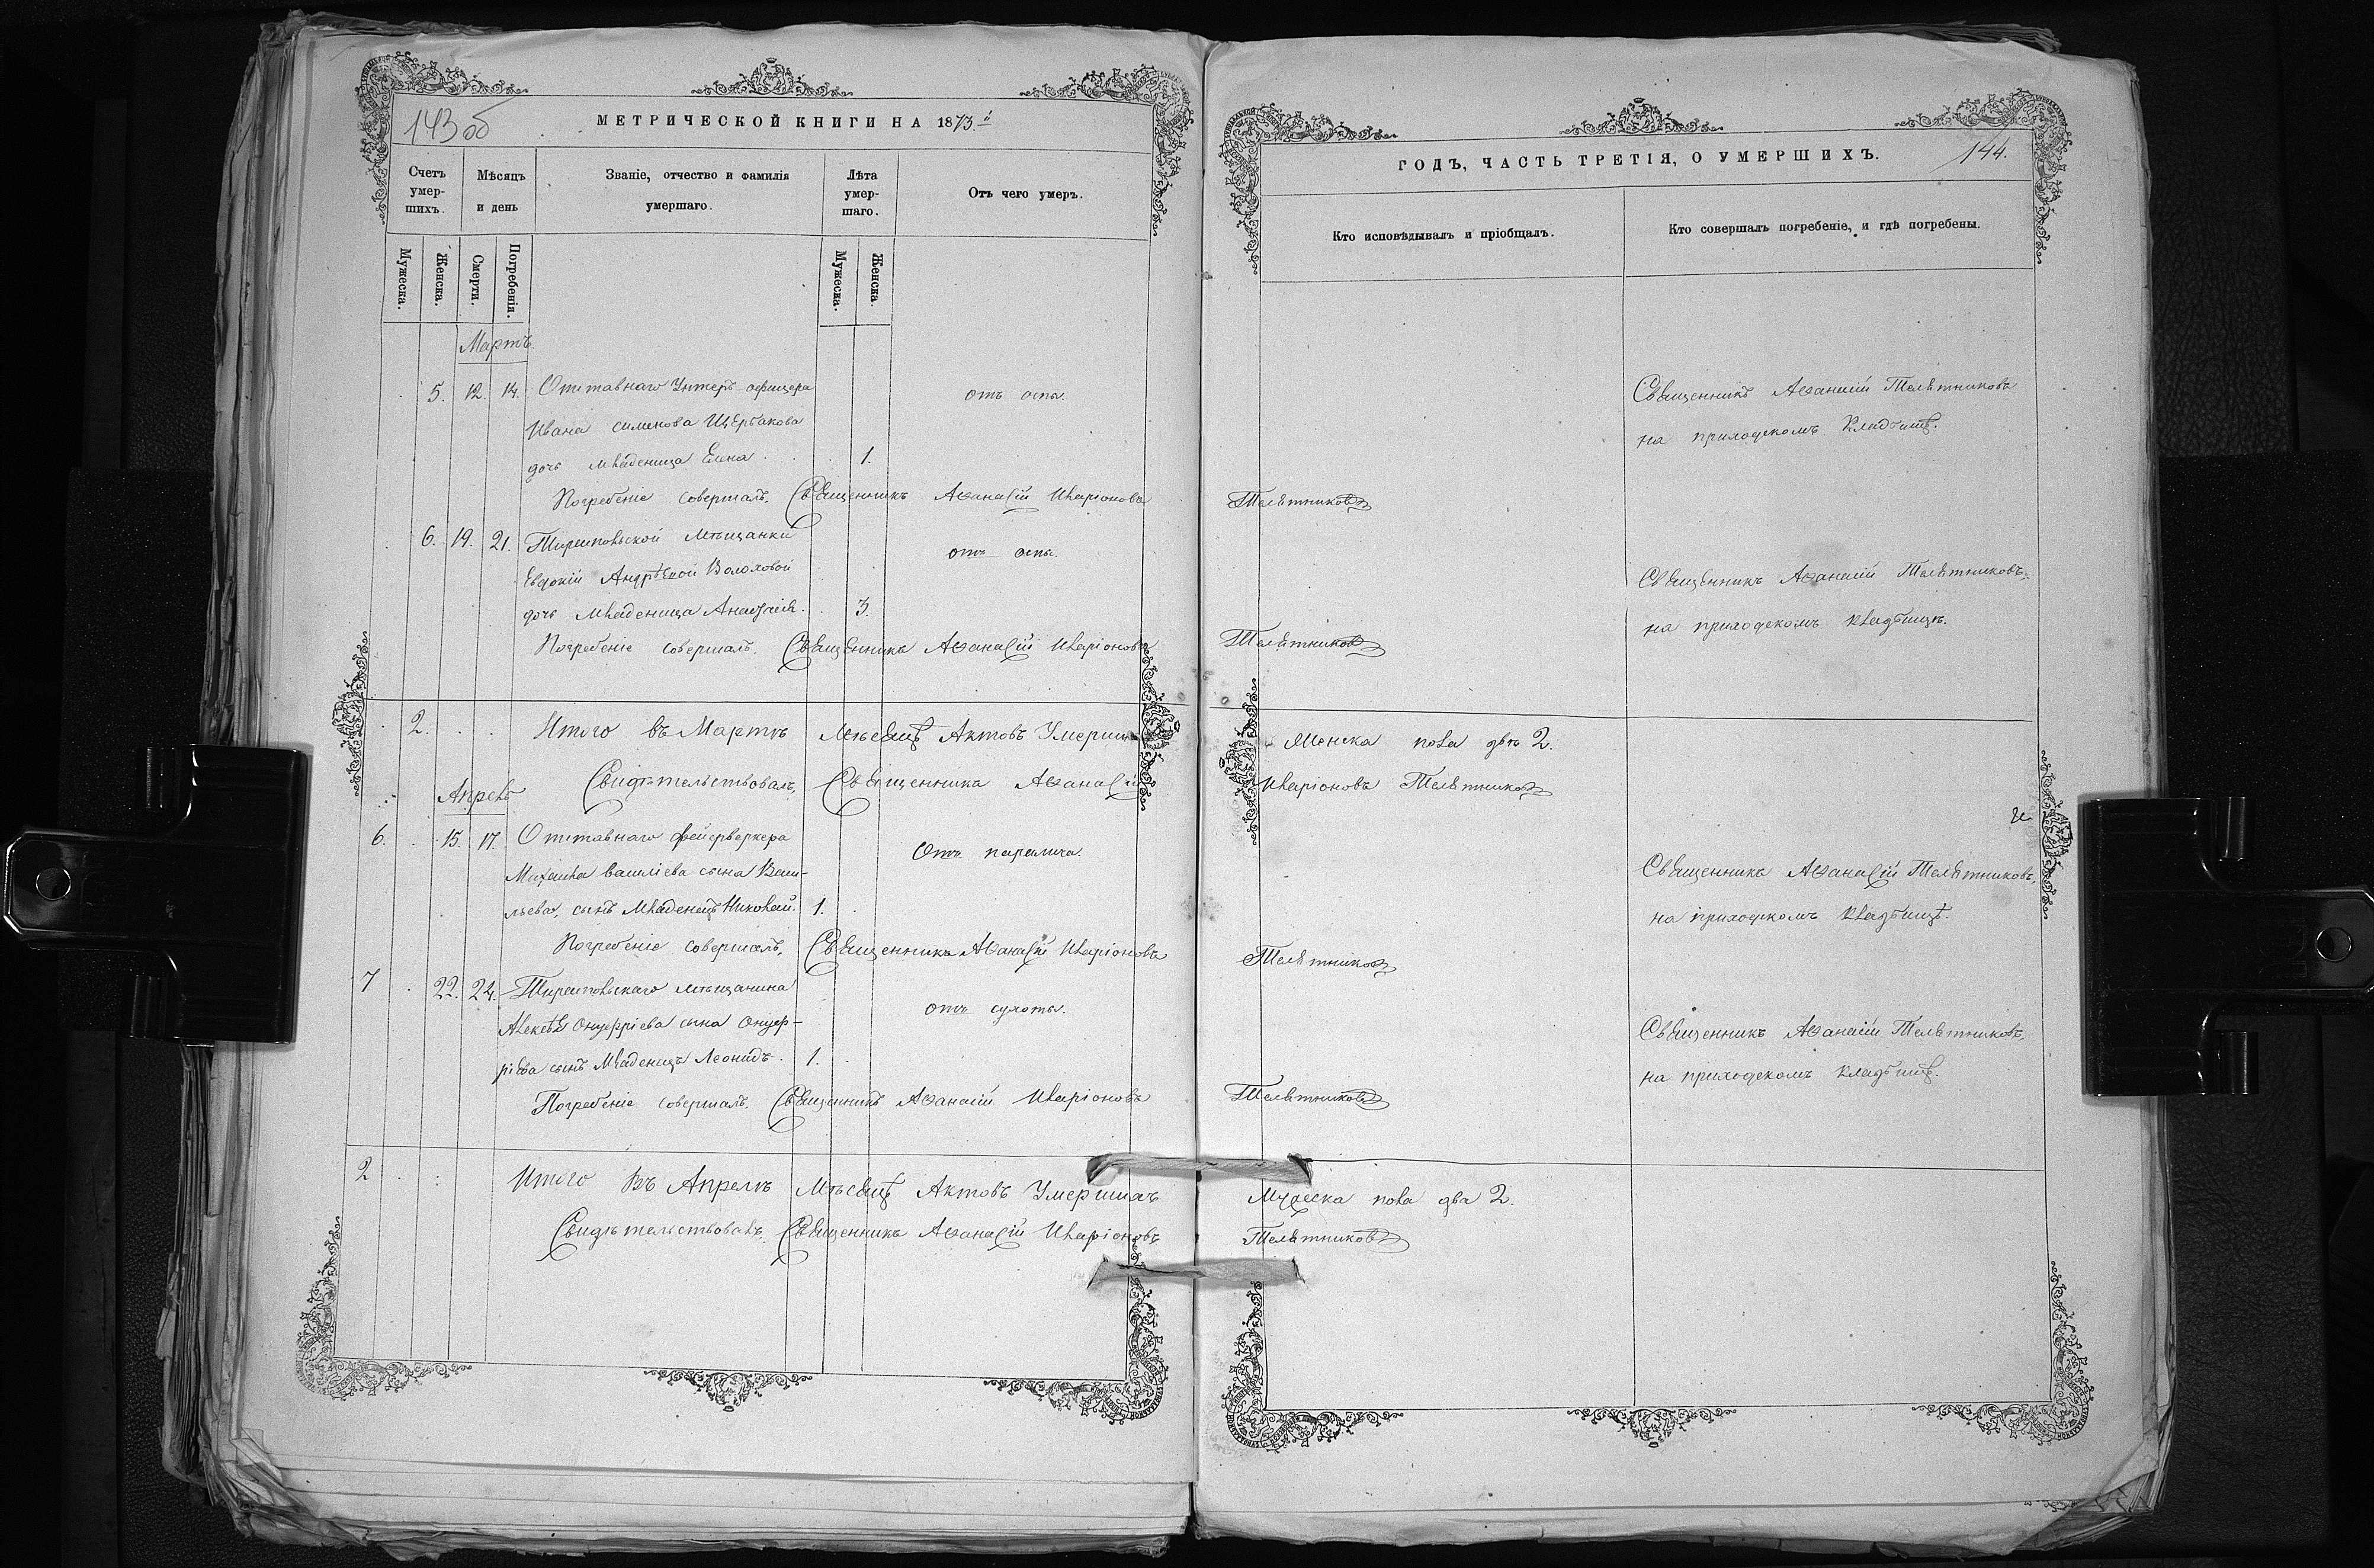 143об
МЕТРИЧЕСКОЙ КНИГИ НА 1873.й
Счетъ умер- шихъ.
Мѣсяцъ и день
Званіе, отчество и фамилія умершаго.
Лѣта умер- шаго.
Отъ чего умеръ.
Мужеска.
Женска.
Смерти.
Погребенія.
Мужеска.
Женска.
Мартъ.
5. 12. 14. Отставнаго Унтеръ-офицера
отъ оспы.
Ивана Симинова Щербакова
дочь младеница Елена. 1.
Погребеніе совершалъ, Священникъ Аѳанасій Иларіоновъ
6. 19. 21. Тирапольской мѣщанки
отъ оспы.
Евдокіи Андрѣевой Волоховой
дочь младеница Анастасія. 3.
Погребеніе совершалъ. Священникъ Аѳанасій Иларіоновъ
2. Итого въ Мартѣ Мѣсяцѣ Актовъ Умершихъ
Свидѣтельствовалъ, Священникъ Аѳанасій
Апрель
6. 15. 17. Отставнаго фейерверкера
Отъ паралича.
Михаила Василіева сына Васи-
льева, сынъ Младенецъ Николай. 1.
Погребеніе совершалъ, Священникъ Аѳанасій Иларіоновъ
7 22. 24. Тирапольскаго мѣщанина
отъ сухоты.
Алексѣя Онуфріева сына Онуф-
ріева сынъ Младенецъ Леонидъ. 1.
Погребеніе совершалъ. Священникъ Аѳанасій Иларіоновъ
2 Итого Въ Апрелѣ Мѣсяцѣ Актовъ Умершихъ
Свидѣтельствовалъ, Священникъ Аѳанасій Иларіоновъ
ГОДЪ, ЧАСТЬ ТРЕТІЯ, О УМЕРШИХЪ.
144.
Кто исповѣдывалъ и пріобщалъ.
Кто совершалъ погребеніе, и гдѣ погребены.
Священникъ Аѳанасій Телятниковъ
на приходскомъ Кладбищѣ.
Телятниковъ
Священникъ Аѳанасій Телятниковъ,
на приходскомъ кладбищѣ.
Телятниковъ
Женска пола двѣ 2.
Иларіоновъ Телятниковъ
Священникъ Аѳанасій Телятниковъ,
на приходскомъ Кладбищѣ.
Телятниковъ
Священникъ Аѳанасій Телятниковъ,
на приходскомъ Кладбищѣ.
Телятниковъ
Мужеска пола два 2.
Телятниковъ